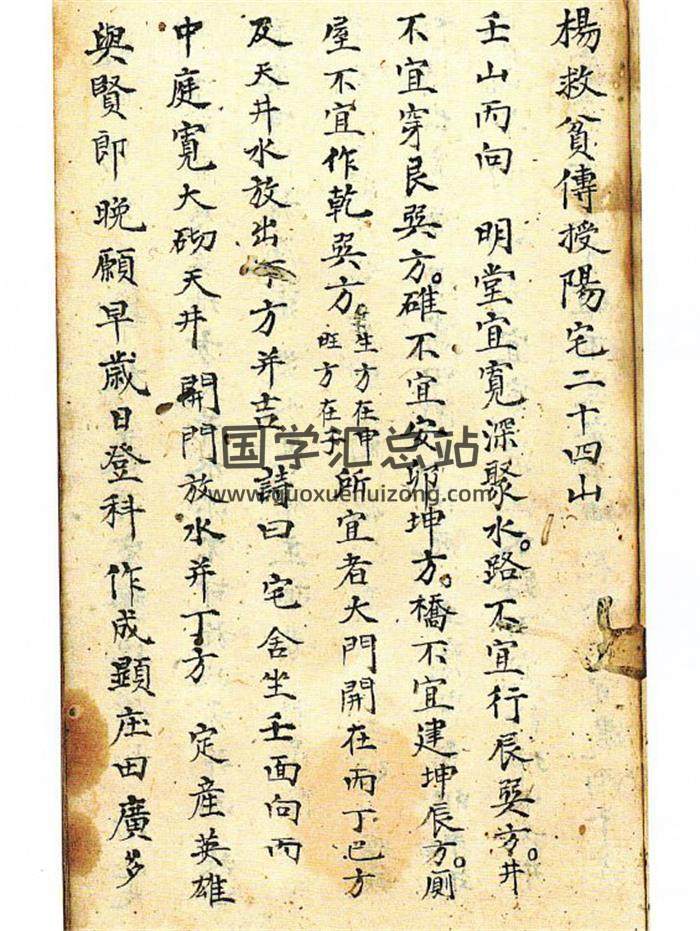 楊救貧傳授陽宅二十四山
壬山丙向 明堂宜寬深聚水。路不宜行辰巽方。井
不宜穿艮巽方。碓不宜安卯坤方。橋不宜建坤辰方。厠
屋不宜作乾巽方。生方在申旺方在子所宜者大門開在丙丁巳方
及天井水放出丁方并吉 詩曰 宅舍坐壬面向丙
中庭寬大砌天井 開門放水并丁方 定產英雄
與賢郎 晚願早歲日登科 作成顕庄田廣多
国学汇总站
www.guoxuehuizong.com